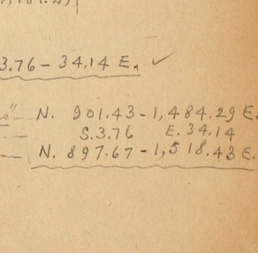 3.76 – 34.14 E. ✓
N. 901.43 – 1,484.29 E.
S. 3.76 E. 34.14
N. 897.67 – 1,518.43 E.